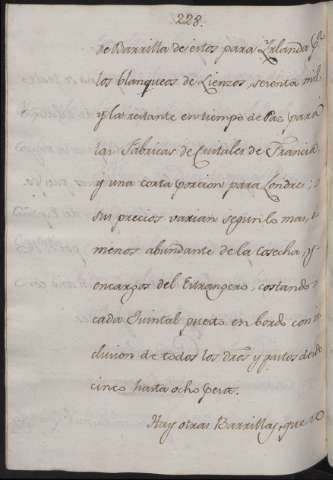 228.
de Barrilla de estos para Yrlanda, p.ª
los blanqueos de Lienzos, sesenta mil
y la restante en tiempo de Paz para
las Fabricas de Cristales de Francia,
y una corta porcion para Londres;
sus precios varian segun lo mas, o
menos abundante de la Cosecha, y
encargos del Estrangero, costando
cada Quintal puesto en bordo con in
clusion de todos los dros y gastos desde
cinco hasta ocho pesos.
Hay otras Barrillas, que